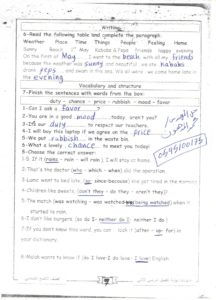 Writing
6-Read the following table and complete the paragraph.
Weather Place Time Things People Feeling Home
Sunny Beach 1st May Kababs & Peps friends happy evening
On the first of May, I went to the beach with my friends
because the weather was sunny and beautiful. we ate kababs
drank peps and swam in the sea. We all were. we came home late in
the evening
Vocabulary and structure
7-Finish the sentences with words from the box:
duty - chance - price - rubbish - mood - favor
1-Can I ask a favor ?
2-You are in a good mood today, aren't you?
3-It's our duty to respect our teachers.
4-I will buy this laptop if we agree on the price
5-We put rubbish in the waste bin.
6-What a lovely chance to meet you today!
8-Choose the correct answer:
1-If it (rains - rain - will rain) I will stay at home.
2-That's the doctor (who - which - when) did the operation.
3-Lama went to bed late (so - since - because) she got tired in the morning.
4-Children like sweets (don't they - do they - aren't they)?
5-The match (was watching - was watched - was being watched) when it
started to rain.
6-I don't like burgers. (so do I - neither do I - neither I do)
7-If you don't know this word, you can look it (after - up - for) in
your dictionary.
8-Malek wants to know if (do I love - I do love - I love) English
0595100175